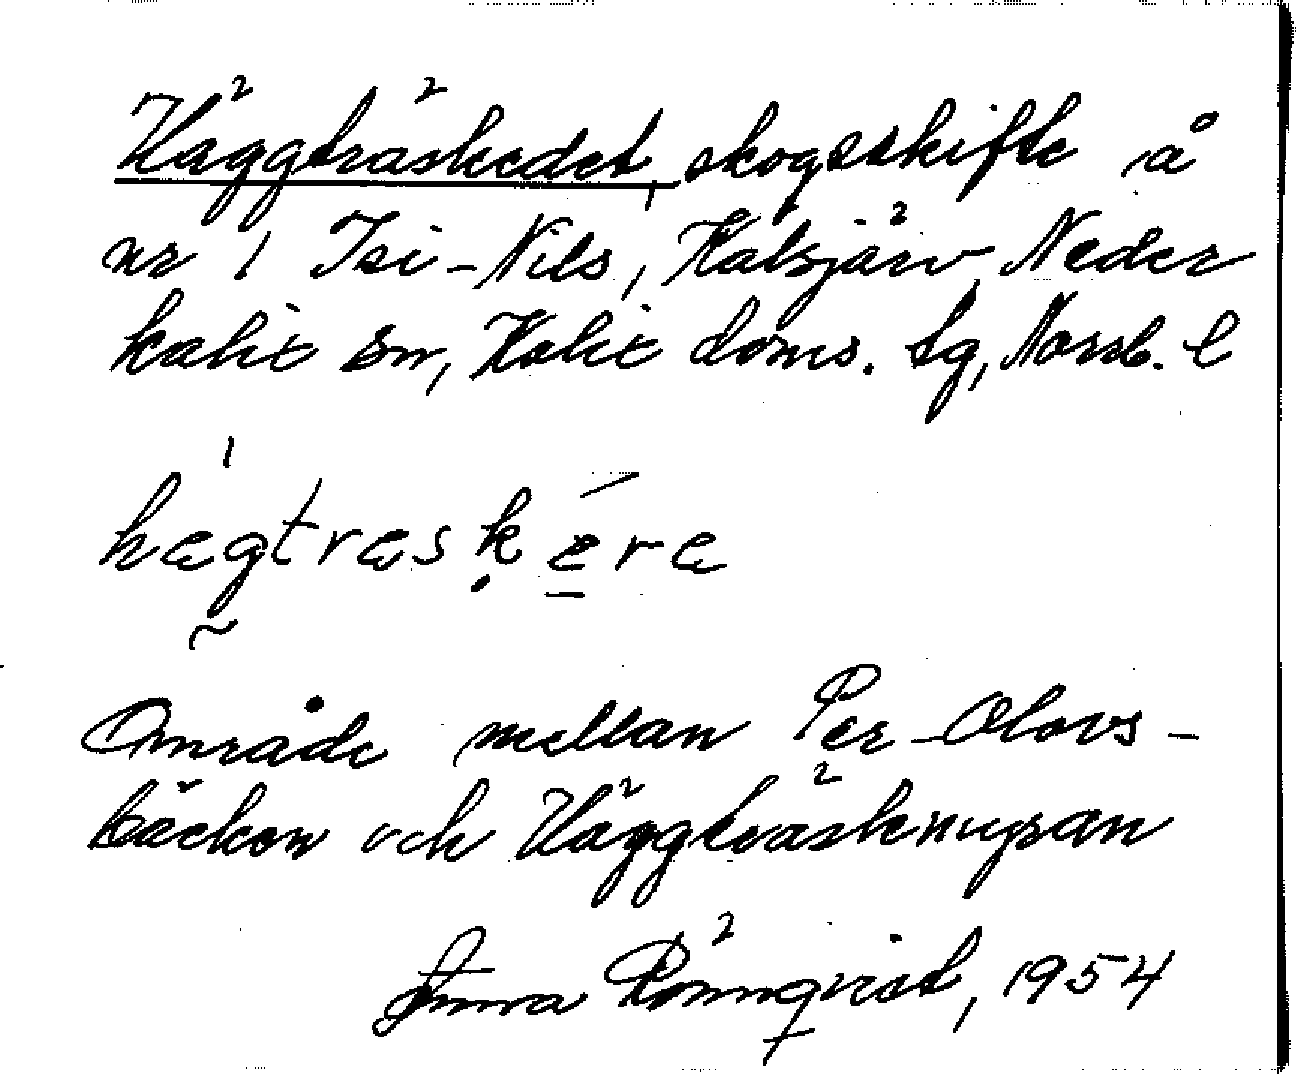 Häggträskedet, skogsskifte å
nr 1 Isi-Nils, Kälsjärv, Neder
kalix sn, Kalix doms. tg, Norrb. l
hægtræskera
Område mellan Per-Olovs-
bäcken och Häggträskmyran
Anna Rönnqvist, 1954